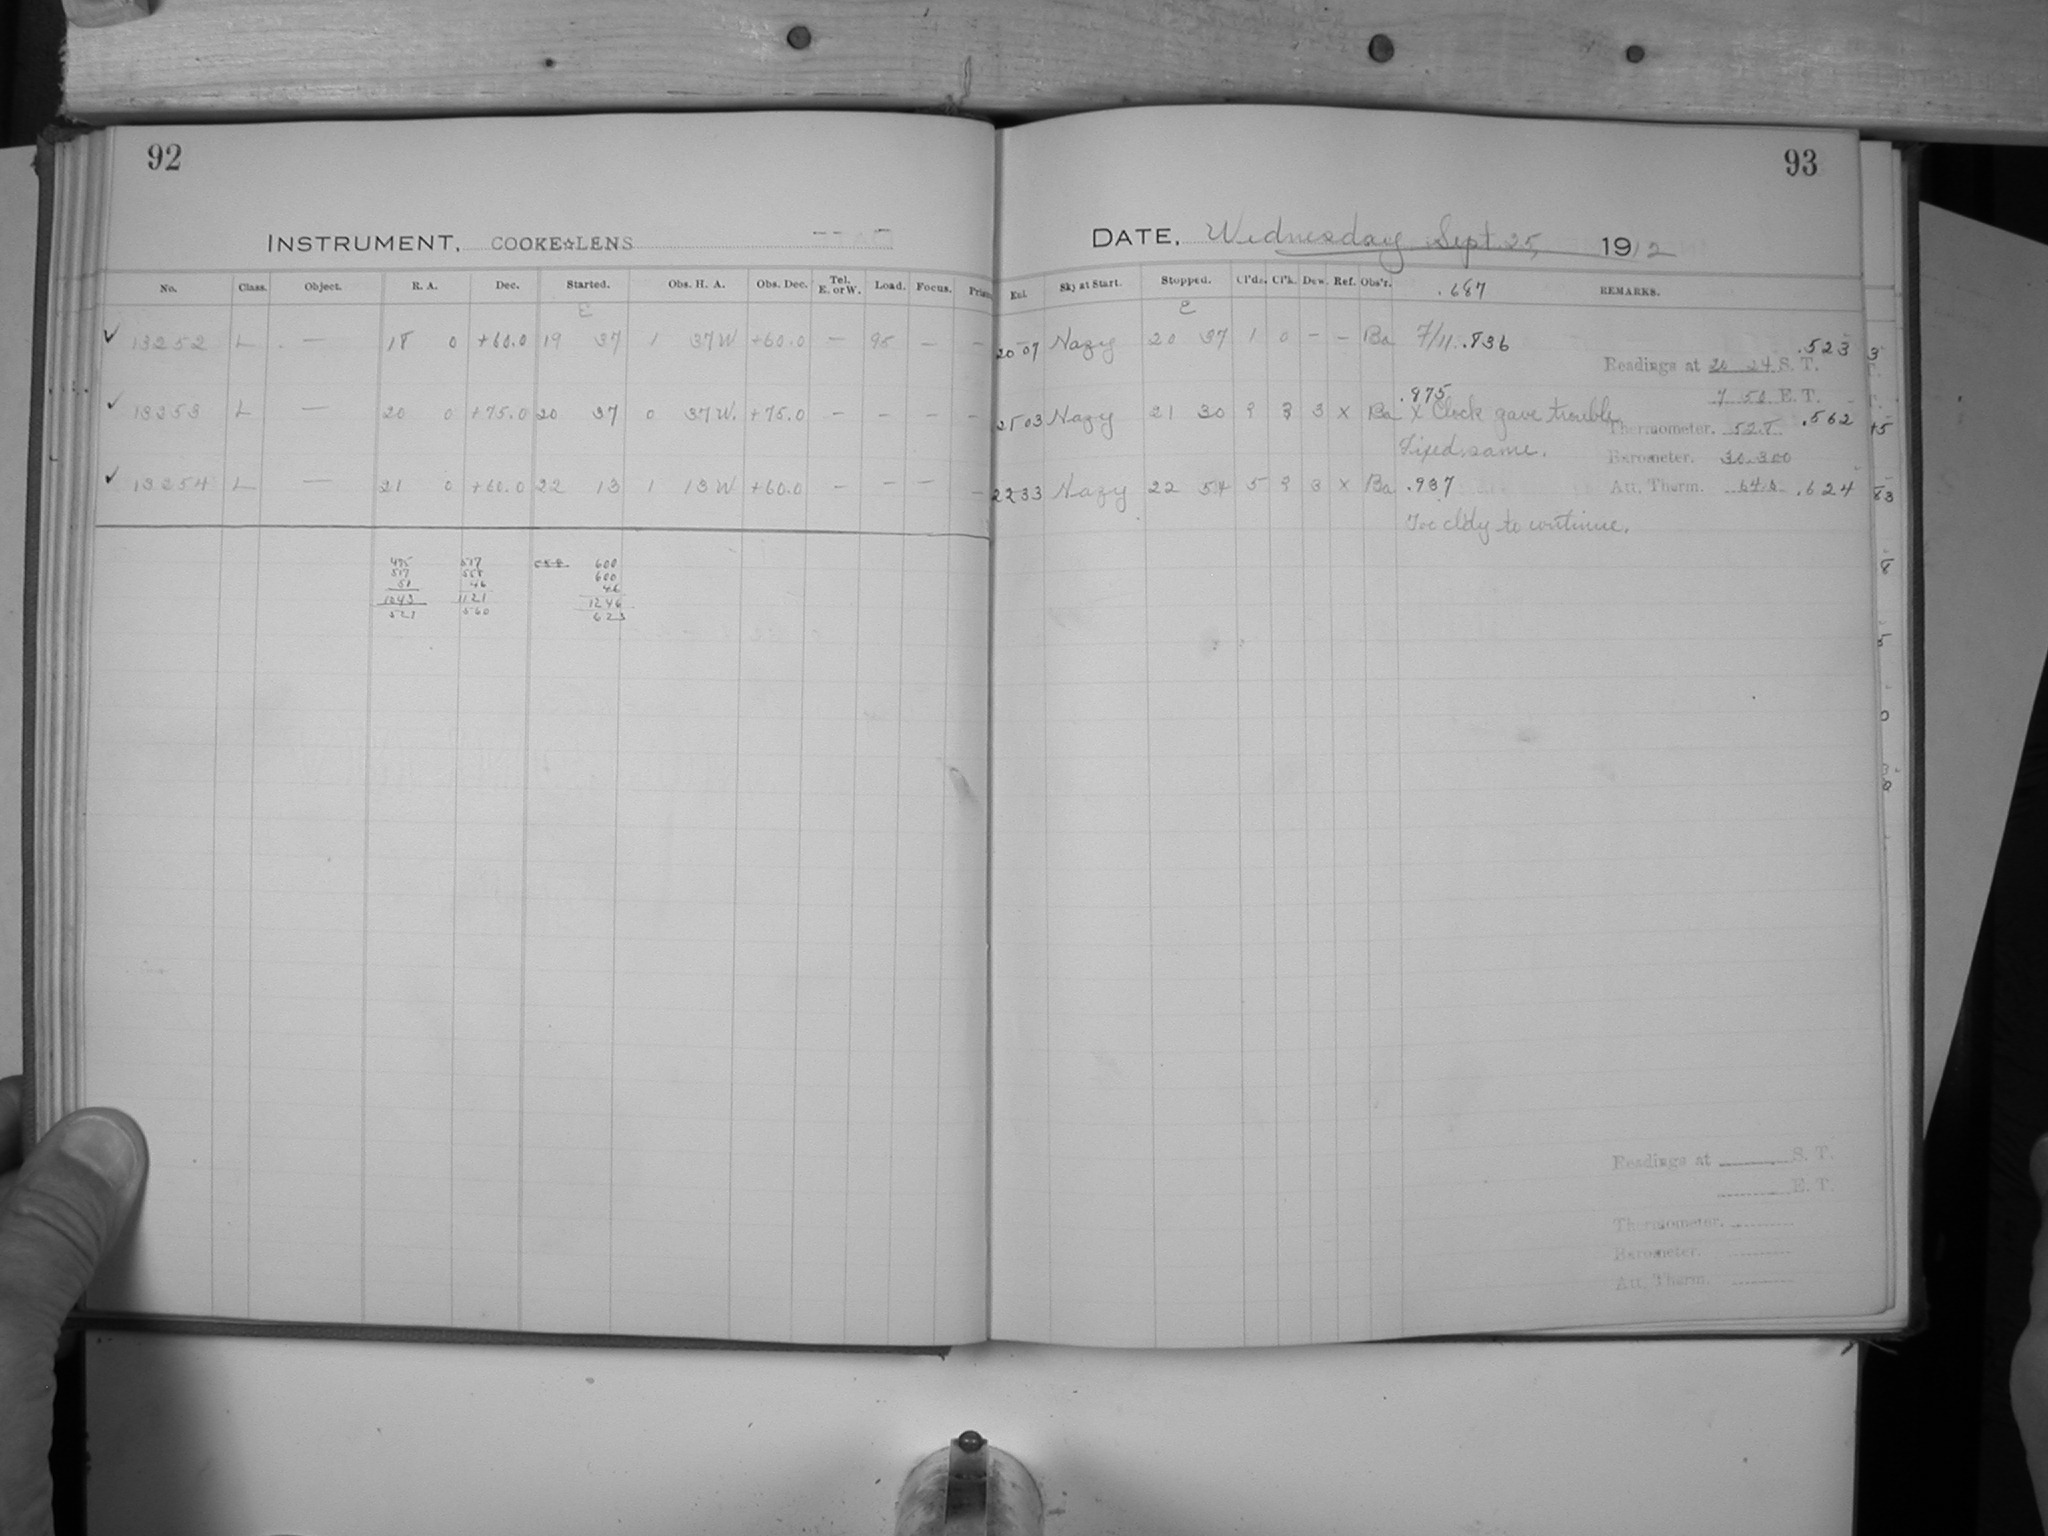 92
INSTRUMENT, COOKE☆LENS
No. Class. Object. R. A. Dec. Started. Obs. H. A. Obs. Dec. Tel. E. or W. Load. Focus.
✓ 13252 L — 18 0 +60.0 19 37 1 37 W +60.0 — 95 — —
✓ 13253 L — 20 0 +75.0 20 37 0 37 W. +75.0 — — — —
✓ 13254 L — 21 0 +60.0 22 13 1 13 W +60.0 — — — —
517 600
517 558 600
46 46
1043 1121 1246
521 560 623
93
DATE, Wednesday Sept. 25, 1912
Sky at Start. Stopped. Cl'ds. Cl'k. Dew. Ref. Obs'r. .687 REMARKS.
20 07 Hazy 20 37 1 0 – – Ba 7/11 .836 .523
Readings at 20 24 S. T.
.975
7 58 E. T.
21 03 Hazy 21 30 ? ? 3 X Ba X Clock gave trouble
Thermometer. 52.8 .562
Fixed same.
Barometer. 30.300
22 33 Hazy 22 54 5 ? 3 X Ba .937
Att. Therm. .624
Too cldy to continue.
Readings at S. T.
E. T.
Thermometer.
Barometer.
Att. Therm.